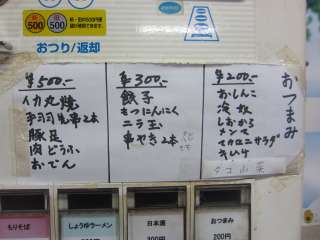 500
500
おつり/返却
¥500.-
イカ丸焼
手羽先串2本
豚足
肉どうふ
おでん
¥300.-
餃子
もつにんにく
ニラ玉
串やき2本
おつまみ
¥200.-
おしんこ
冷奴
しおから
メンマ
マカロニサラダ
もりそば
しょうゆラーメン
日本酒
おつまみ
300円
200円